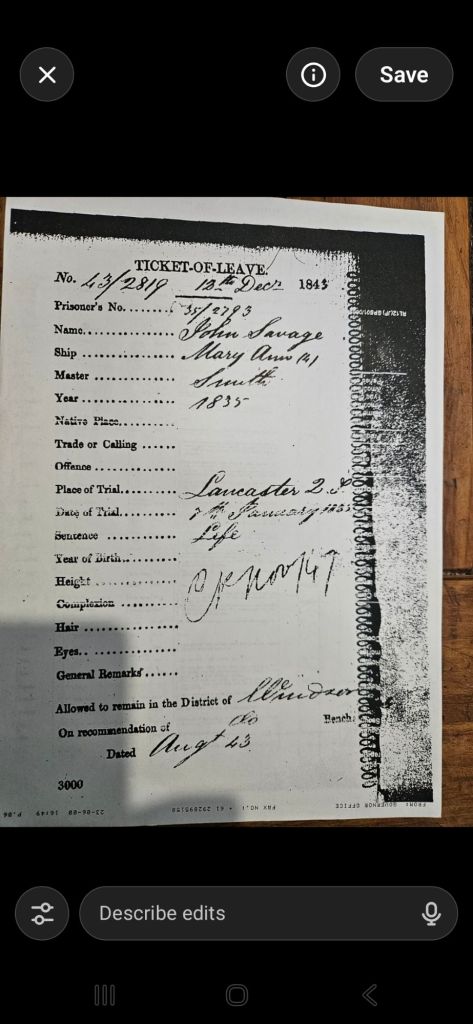 Save
TICKET-OF-LEAVE.
No. 43/2819 12th Decr 1843
Prisoner's No........ 35/2793
Name............... John Savage
Ship ............... Mary Ann (4)
Master ............... Smith
Year ............... 1835
Native Place..........
Trade or Calling ......
Offence ...............
Place of Trial.......... Lancaster 2. S
Date of Trial.......... 7th January 1835
Sentence ............ Life
Year of Birth..........
Height ...............
Complexion ..........
Hair ...............
Eyes...............
General Remarks......
Allowed to remain in the District of Windsor
On recommendation of Do Bench:
Dated Augt 43
3000
FROM: GOVERNOR OFFICE FAX NO.: + 61 292895150 23-06-00 16:49 P.06
Describe edits